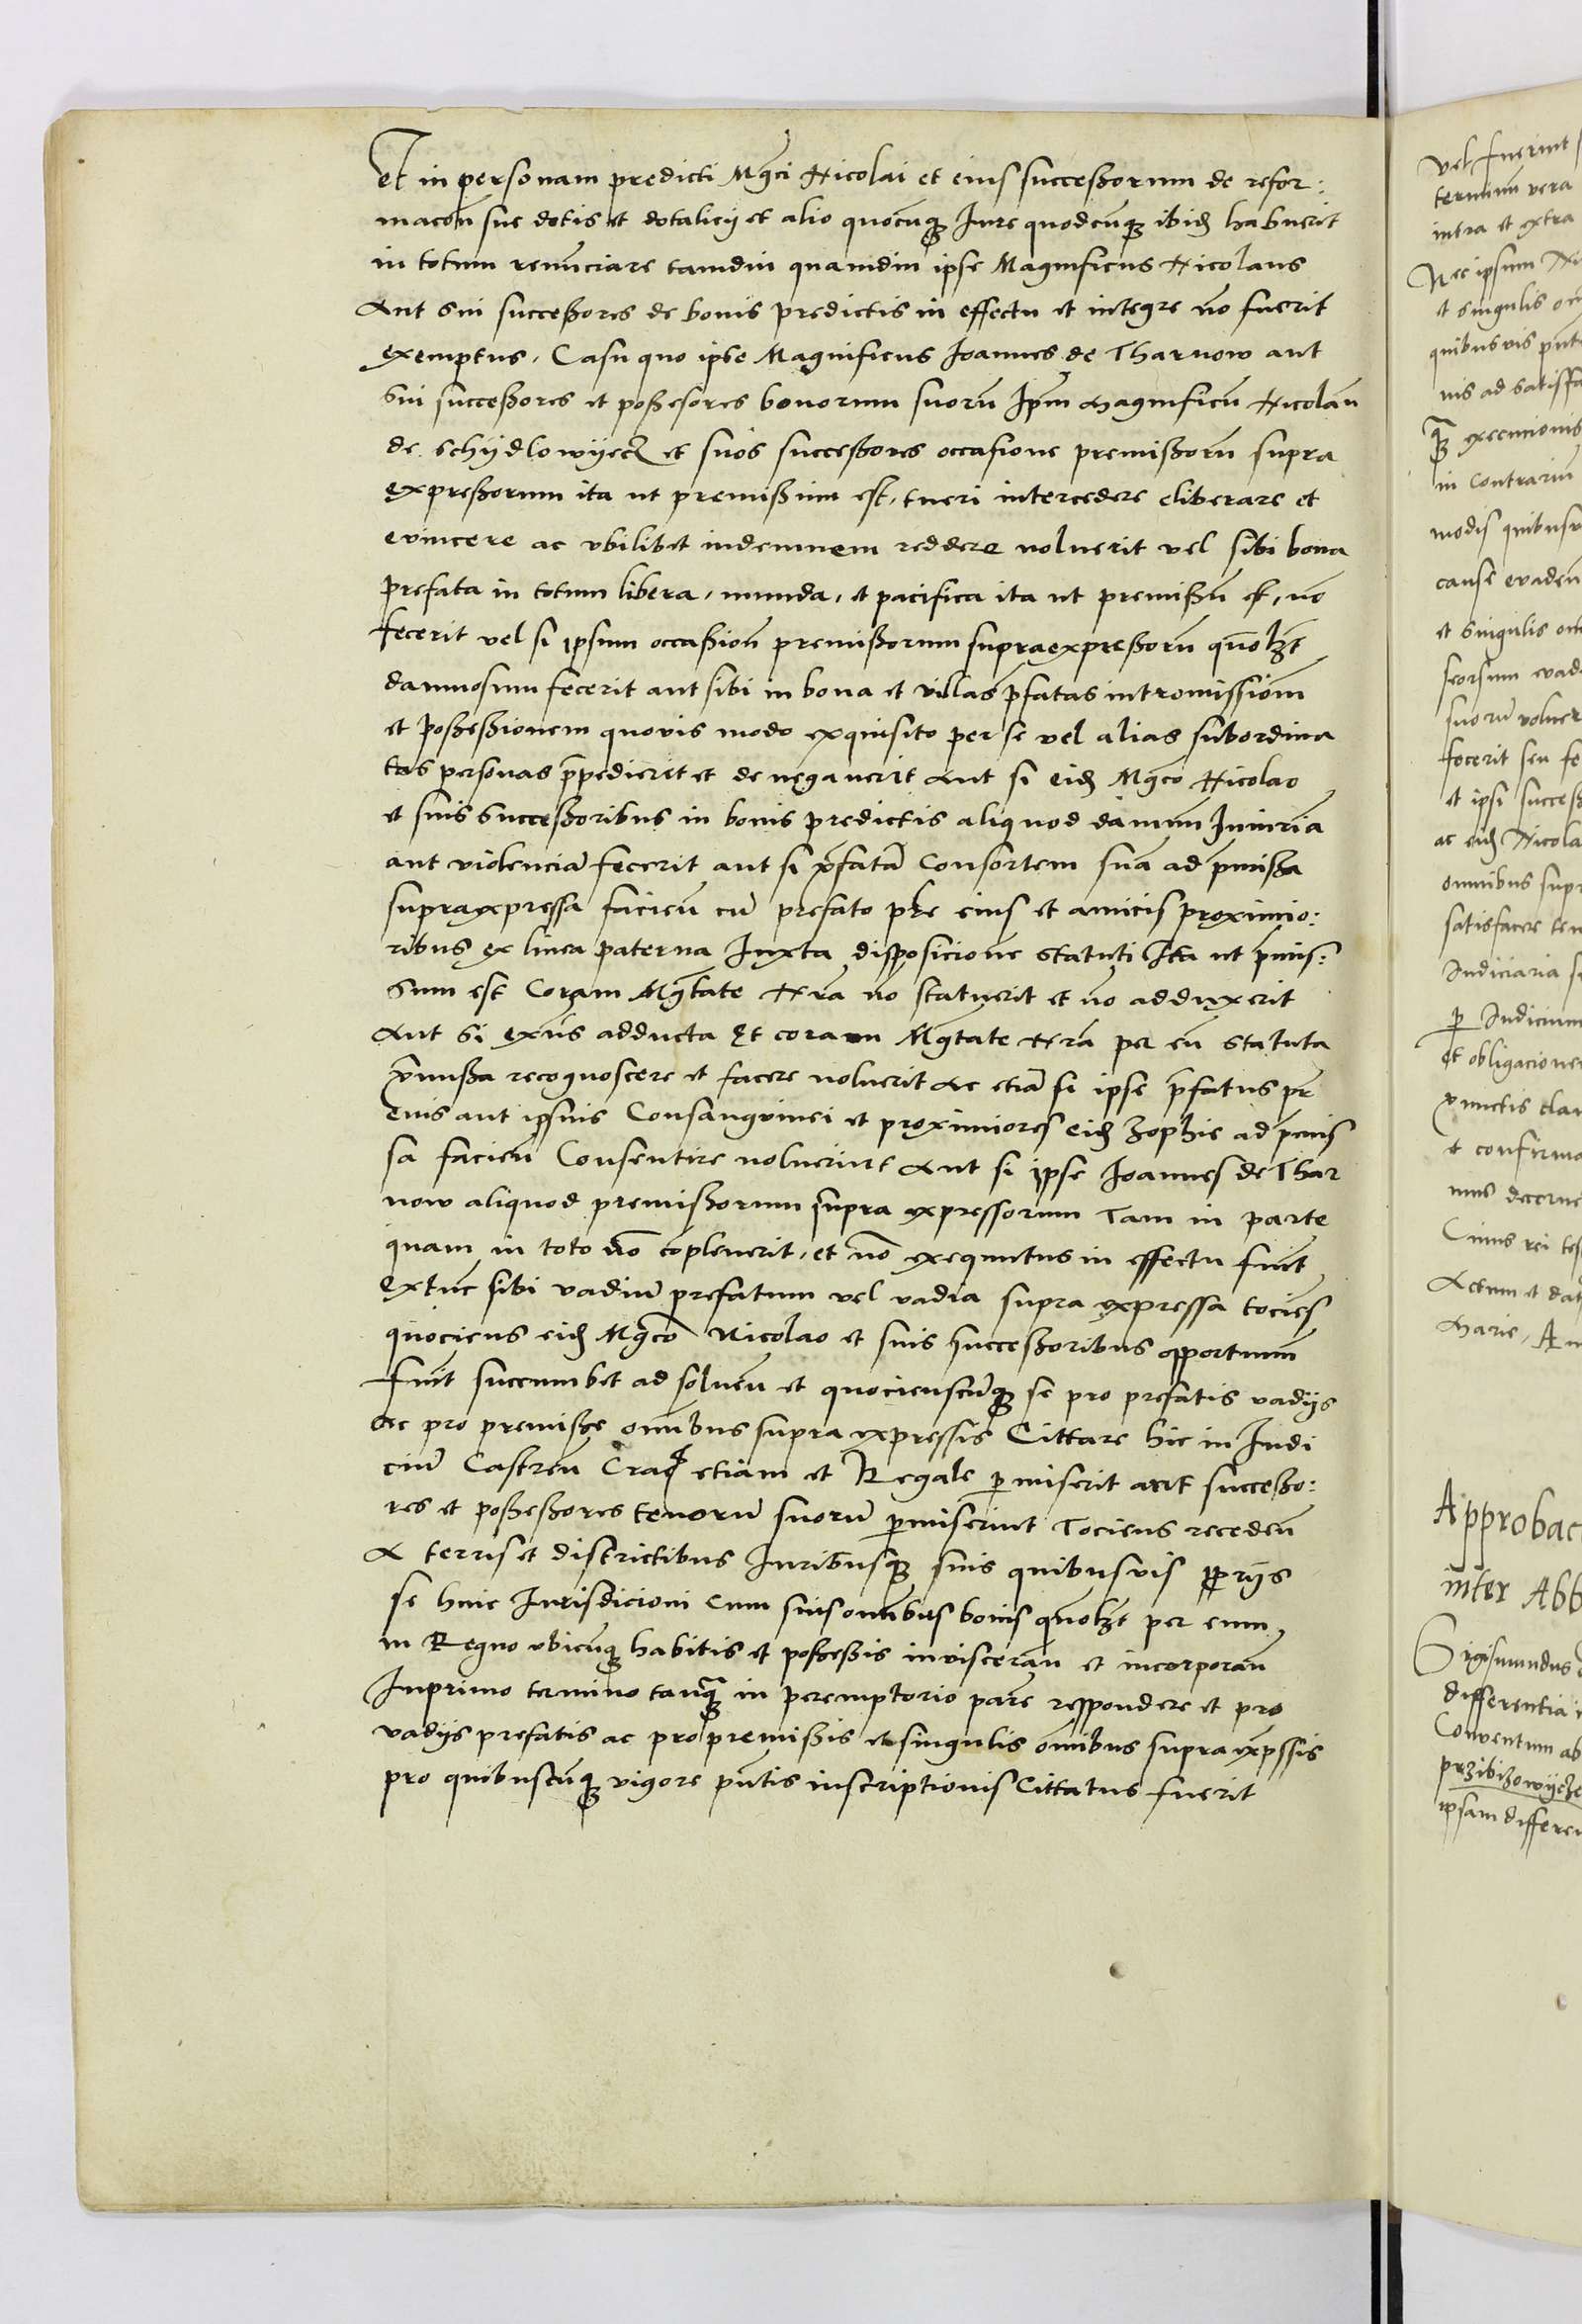 et in personam predicti Mgci Nicolai et eius successorum de refor:
macoñ sue dotis et dotalicij et alio quocuqꝫ Iure quodcuqꝫ ibidꝫ habuerit
in totum renunciare tamdiu quamdiu ipse Magnificus Nicolaus
Aut sui successores de bonis predictis in effectu et integre nō fuerit
exemptus. Casu quo ipse Magnificus Ioannes de Tharnow aut
sui successores et possesores bonorum suorū Ipm̄ Magnificū Nicolaū
de Schydlowyecz et suos successores occasione premissorū supra
expressorum ita ut premissum est, tueri intercedere eliberare et
evincere ac ubilibet indemnem reddere noluerit vel sibi bona
prefata in totum libera, munda, et pacifica ita ut premissū est, nō
fecerit vel si ipsum occassioñ premissorum supraexpressorū quolꝫt
damnosum fecerit aut sibi in bona et villas p̄fatas intromissionē
et possessionem quovis modo exquisito per se vel alias subordina
tas personas p̄pedierit et denegaverit Aut si eidꝫ Mgco Nicolao
et suis successoribus in bonis predictis aliquod damnū Iniuriā
aut violenciā fecerit aut si p̄fatā Consortem suā ad p̄missa
supraexpressa facieñ cū prefato pr̄e eius et amicis proximio:
ribus ex linea paterna Iuxta disposicione statuti Ita ut p̄mis:
sum est Coram Mgtate Nrā nō statuerit et nō adduxerit
Aut si exn̄s adducta Et coram Mgtate Nrā per eū statuta
p̄missa recognoscere et facere noluerit Ac etiā si ipse p̄fatus pr̄
eius aut ipsius Consanguinei et proximiores eidꝫ Zophie ad p̄mis
sa facieñ Consentire noluerint Aut si ipse Ioannes de Thar
now aliquod premissorum supra expressorum Tam in parte
quam in toto nō copleverit, et nō exequutus in effectu fuit
extūc sibi vadiū prefatum vel vadia supra expressa tocies
quociens eidꝫ Mgco Nicolao et suis successoribus opportunū
fuit succumbet ad solveñ et quocienscūqꝫ se pro prefatis vadijs
ac pro premisse omībus supra expressis Cittare hic in Iudi
ciū Castreñ Crac etiam et Regale p̱miserit aut successo:
res et possessores tenorū suorū p̱miserint Tociens recedeñ
A terris et districtibus Iuribusqꝫ suis quibusvis p̱prijs
se huic Iurisdicioni Cum suis omībus bonis quolꝫt per eum
in Regno ubicūqꝫ habitis et possessis invisceran̄ et incorporan̄
In primo termino tanqꝫ in peremptorio parē respondere et pro
vadijs prefatis ac pro premissis et singulis omībus supra expssis
pro quibuscūqꝫ vigore pn̄tis inscriptionis Cittatus fuerit
vel fuerint
terminū vera
intra et extra
Nec ipsum Ni
et singulis om
quibusvis pn̄t
nis ad satisfa
qꝫ execucionis
in Contrariū
modis quibusv
cause evadeñ
et singulis om
seorsum evad
suorū voluer
fecerit seu fe
et ipsi success
ac eidꝫ Nicola
omnibus supr
satisfacere ten
Iudiciaria s
p̱ Iudicium
et obligacione
punctis clau
et confirma
mus decerne
Cuius rei tes
Actum et dat
Marie, An
Approbac
inter Abb
Sigismundus
differentia i
Conventum ab
przibizowycze
ipsam differen